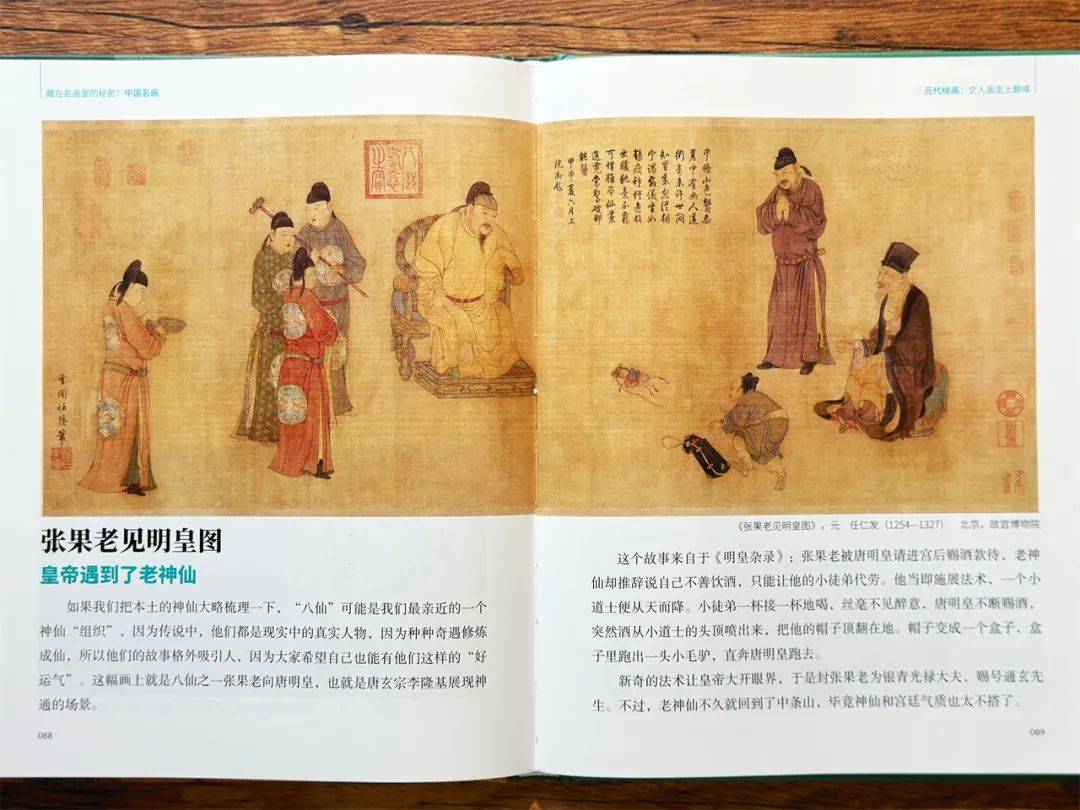 藏在名画里的秘密：中国名画
张果老见明皇图
皇帝遇到了老神仙
如果我们把本土的神仙大略梳理一下，“八仙”可能是我们最亲近的一个
神仙“组织”，因为传说中，他们都是现实中的真实人物，因为种种奇遇修炼
成仙，所以他们的故事格外吸引人，因为大家希望自己也能有他们这样的“好
运气”。这幅画上就是八仙之一张果老向唐明皇，也就是唐玄宗李隆基展现神
通的场景。
088
元代绘画：文人画走上巅峰
《张果老见明皇图》，元 任仁发（1254—1327） 北京，故宫博物院
这个故事来自于《明皇杂录》：张果老被唐明皇请进宫后赐酒款待，老神
仙却推辞说自己不善饮酒，只能让他的小徒弟代劳。他当即施展法术，一个小
道士便从天而降。小徒弟一杯接一杯地喝，丝毫不见醉意，唐明皇不断赐酒，
突然酒从小道士的头顶喷出来，把他的帽子顶翻在地。帽子变成一个盒子，盒
子里跑出一头小毛驴，直奔唐明皇跑去。
新奇的法术让皇帝大开眼界，于是封张果老为银青光禄大夫、赐号通玄先
生。不过，老神仙不久就回到了中条山，毕竟神仙和宫廷气质也太不搭了。
089